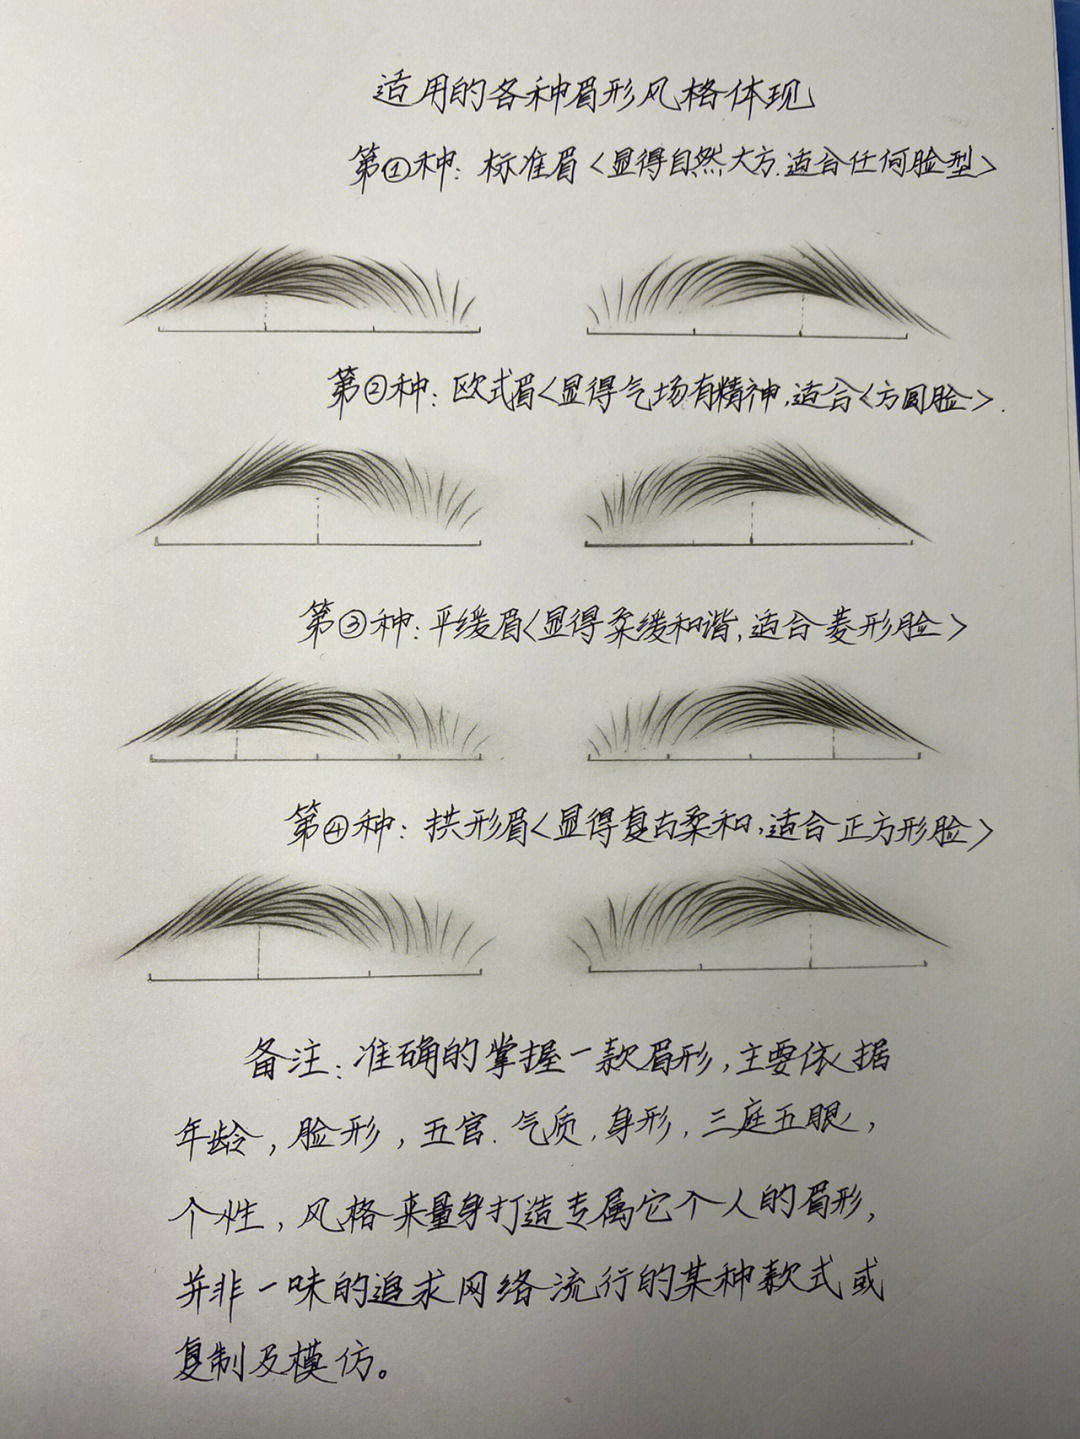 适用的各种眉形风格体现
第①种：标准眉〈显得自然大方.适合任何脸型〉
第②种：欧式眉〈显得气场有精神,适合〈方圆脸〉.
第③种：平缓眉〈显得柔缓和谐,适合菱形脸〉
第④种：拱形眉〈显得复古柔和,适合正方形脸〉
备注：准确的掌握一款眉形,主要依据
年龄,脸形,五官.气质,身形,三庭五眼,
个性,风格来量身打造专属它个人的眉形,
并非一味的追求网络流行的某种款式或
复制及模仿。